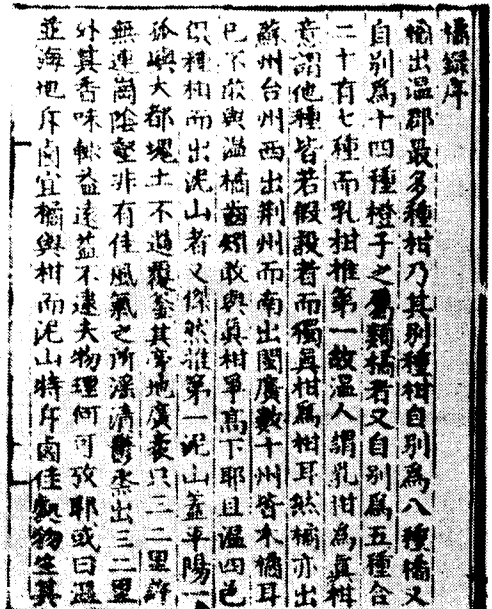 橘録序
橘出溫郡最多種柑乃其別種柑自別爲八種橘又
自別爲十四種橙子之屬類橘者又自別爲五種合
二十有七種而乳柑推第一故溫人謂乳柑爲真柑
意謂他種皆若假設者而獨真柑爲柑耳然橘亦出
蘇州台州西出荆州而南出閩廣數十州皆木橘耳
已不敢與溫橘齒矧敢與真柑爭高下耶且溫四邑
俱種柑而出泥山者又傑然推第一泥山蓋平陽一
孤嶼大都塊土不過覆釜其旁地廣袤只三二里許
無連崗陰壑非有佳風氣之所淫漬鬱烝出三二里
外其香味輒益遠益不逮夫物理何可攷耶或曰溫
並海地斥鹵宜橘與柑而泥山特斥鹵佳處物生其